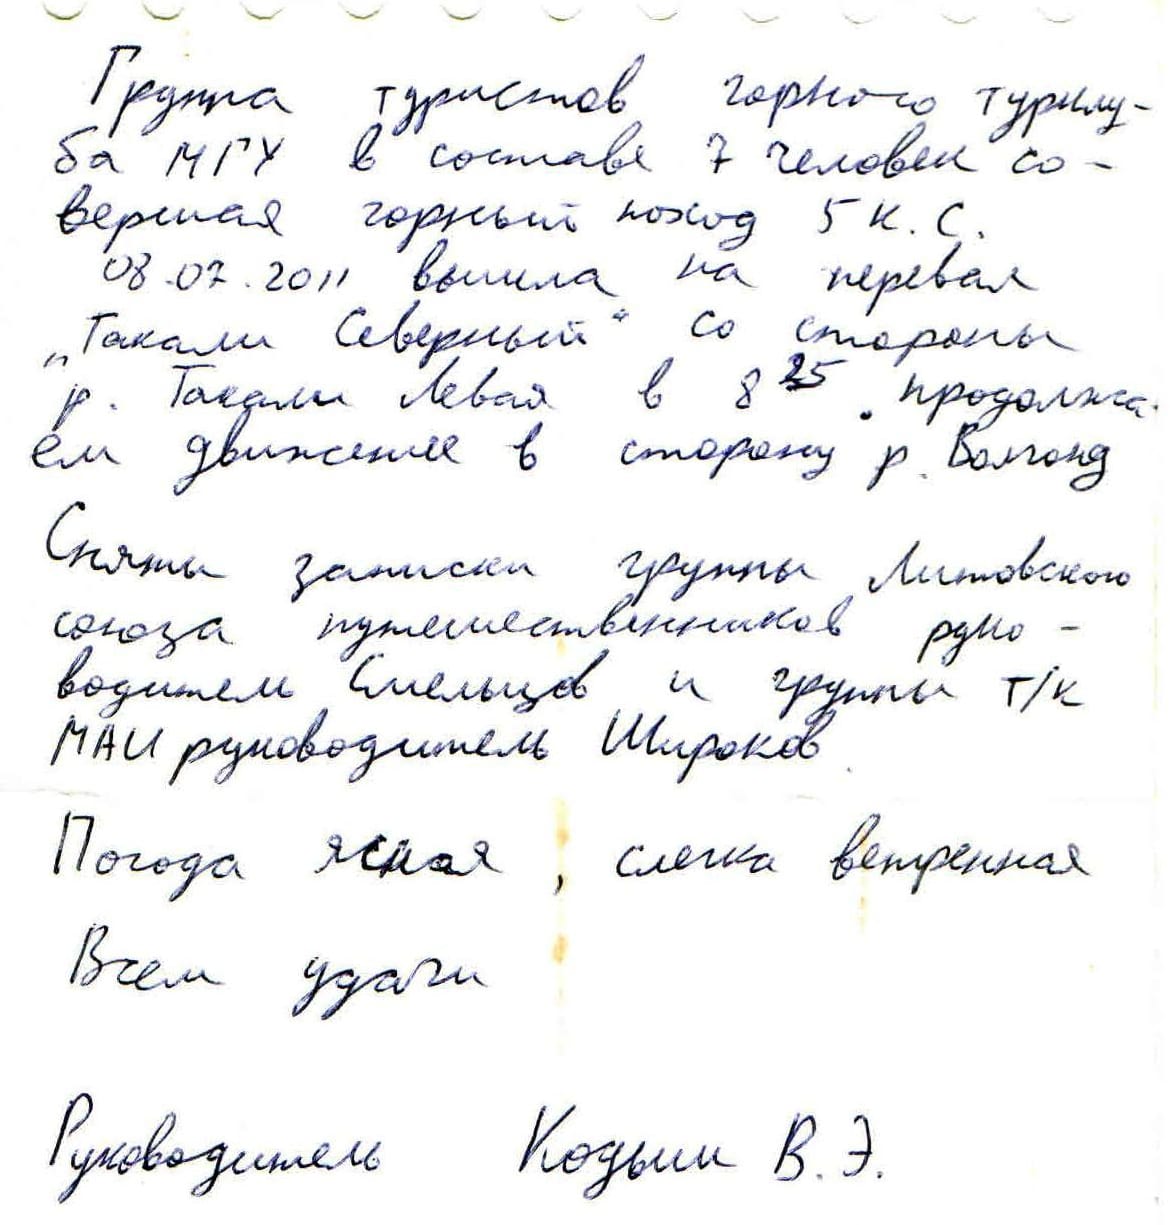 Группа туристов горного турклу-
ба МГУ в составе 7 человек со-
вершая горный поход 5 к.с.
08.07.2011 вышла на перевал
„Такали Северный“ со стороны
р. Такали Левая в 8 25. продолжа-
ем движение в сторону р.
Сняты записки группы Литовского
союза путешественников руко-
водитель и группы т/к
МАИ руководитель Широков.
Погода ясная, слегка ветренная
Всем удачи
Руководитель Кодыш В.Э.